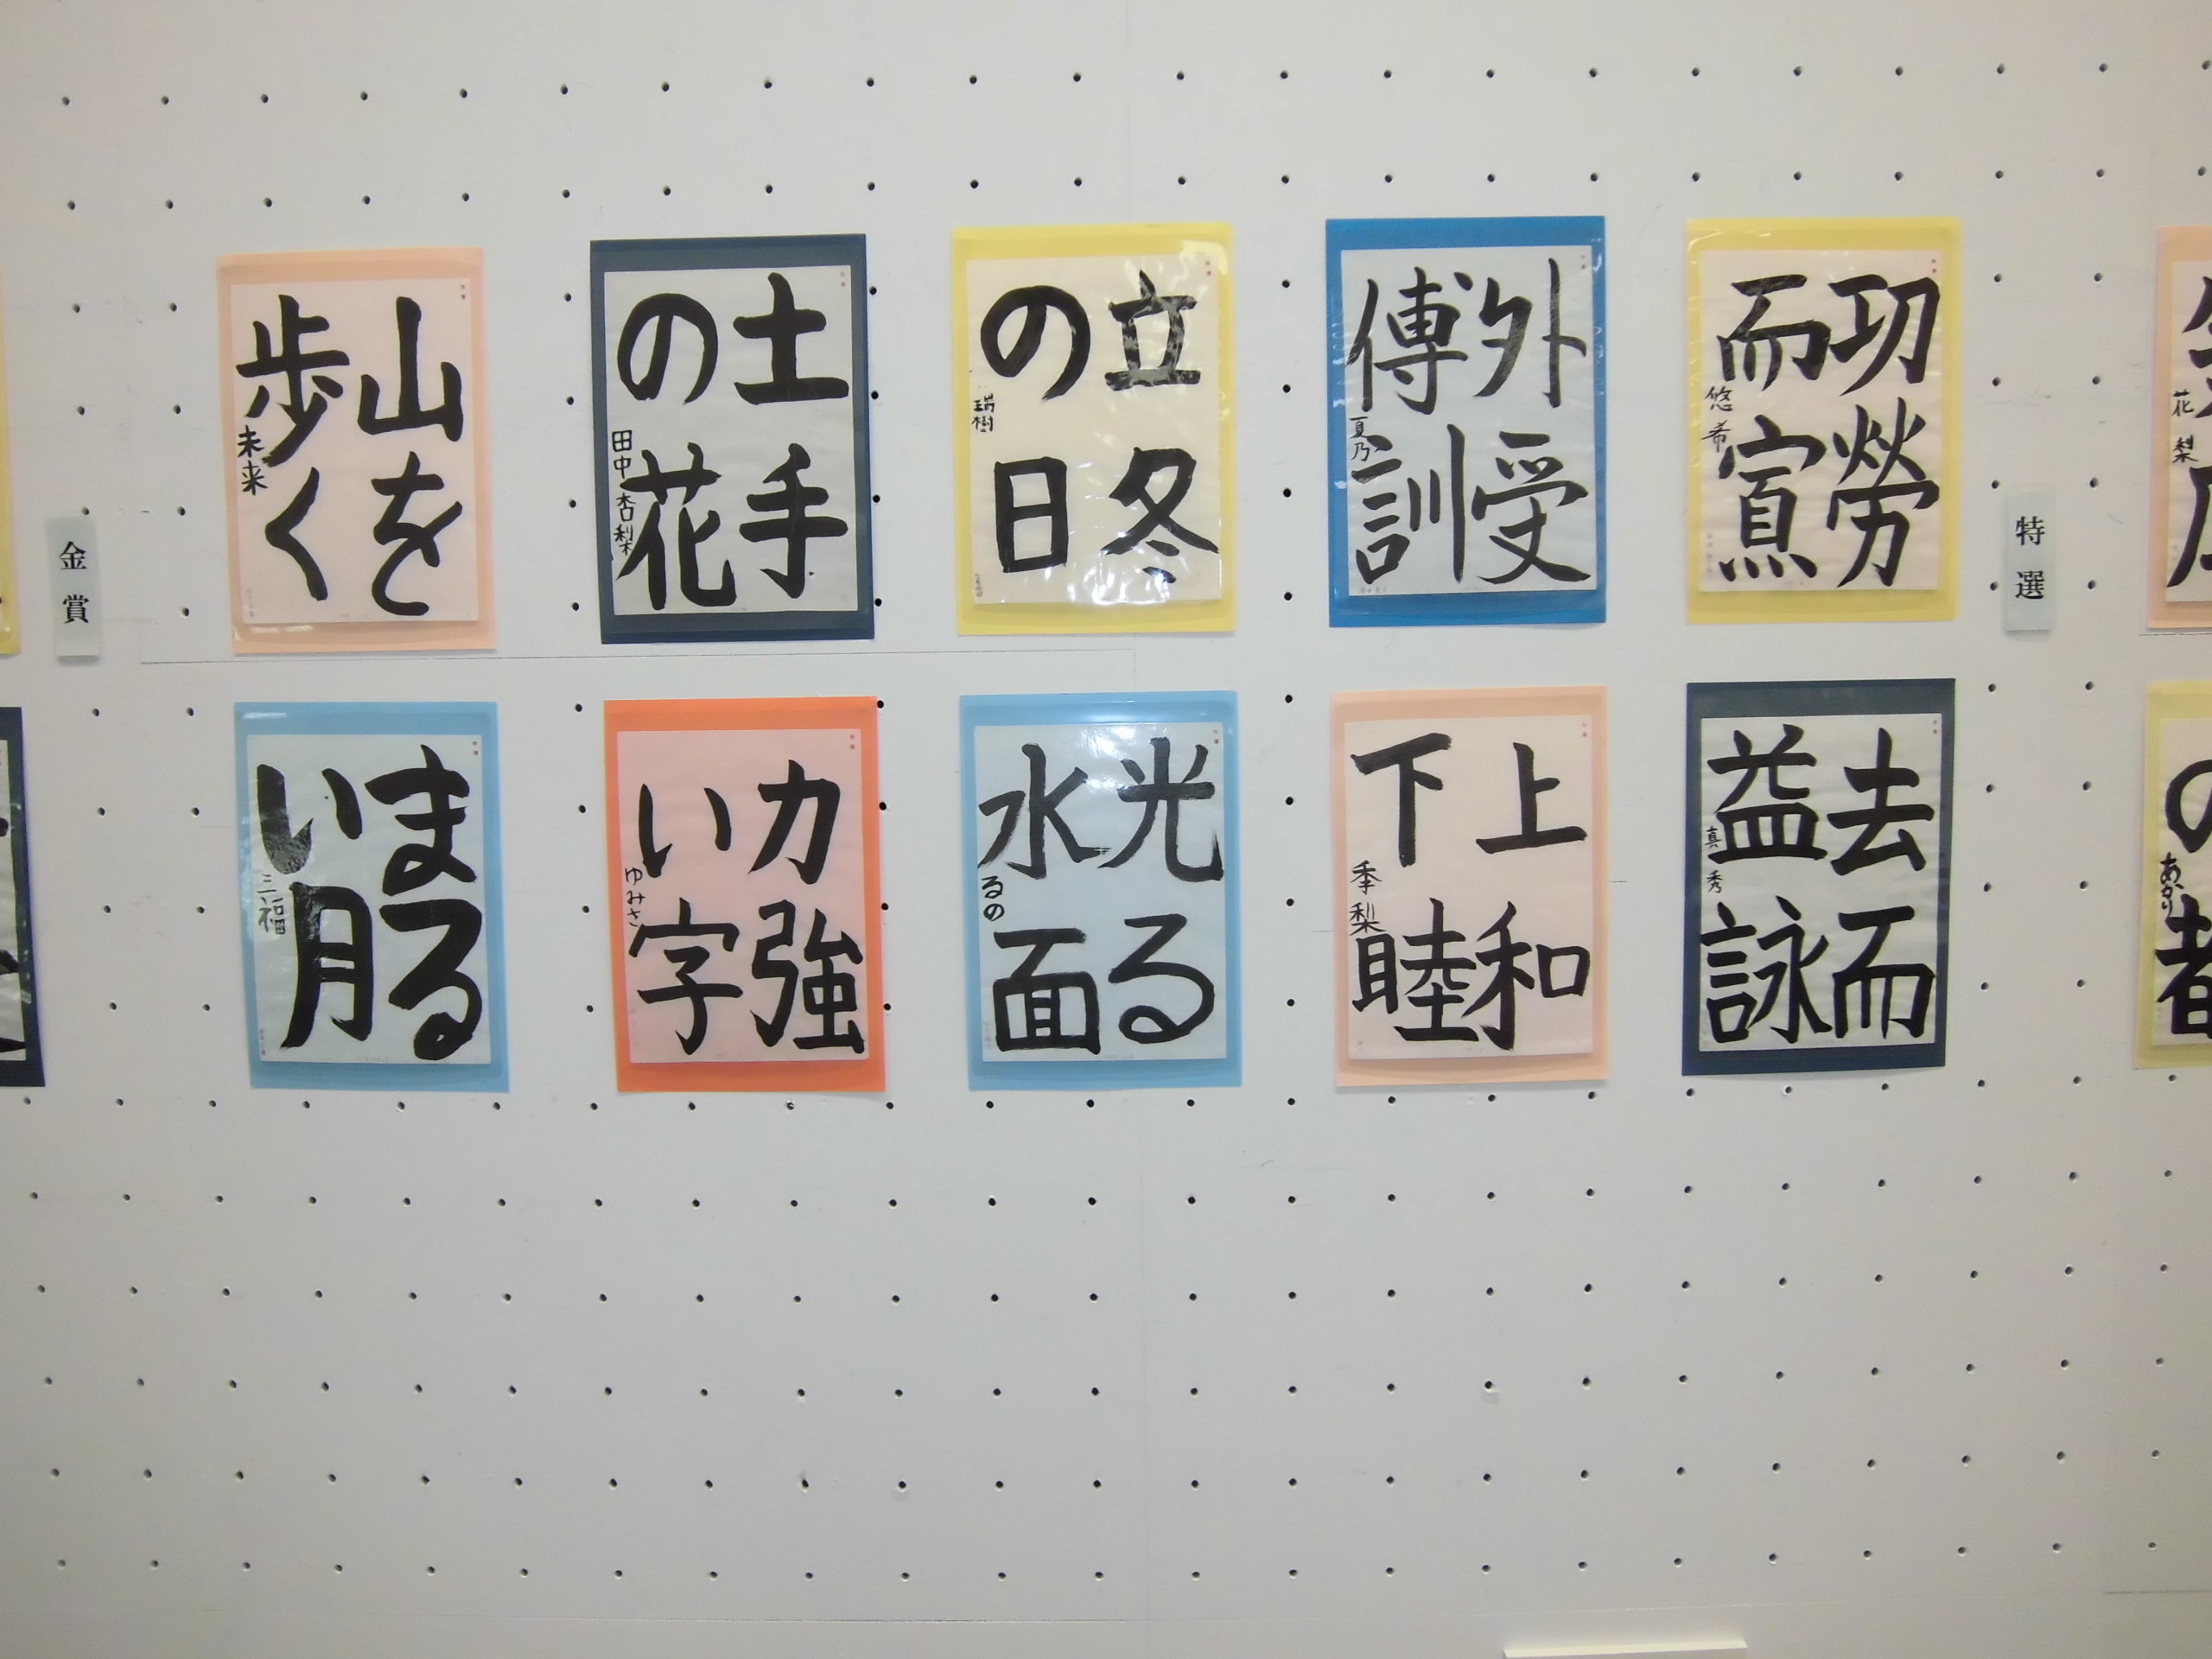 特選
功勞
而
悠希
外受
傅訓
夏乃
立冬
の日
瑞樹
土手
の花
田中杏梨
山を
歩く
未来
金賞
去而
益詠
真秀
上和
下睦
季梨
光る
水面
るの
力強
い字
ゆみさ
まる
い月
三福
花梨
あかり